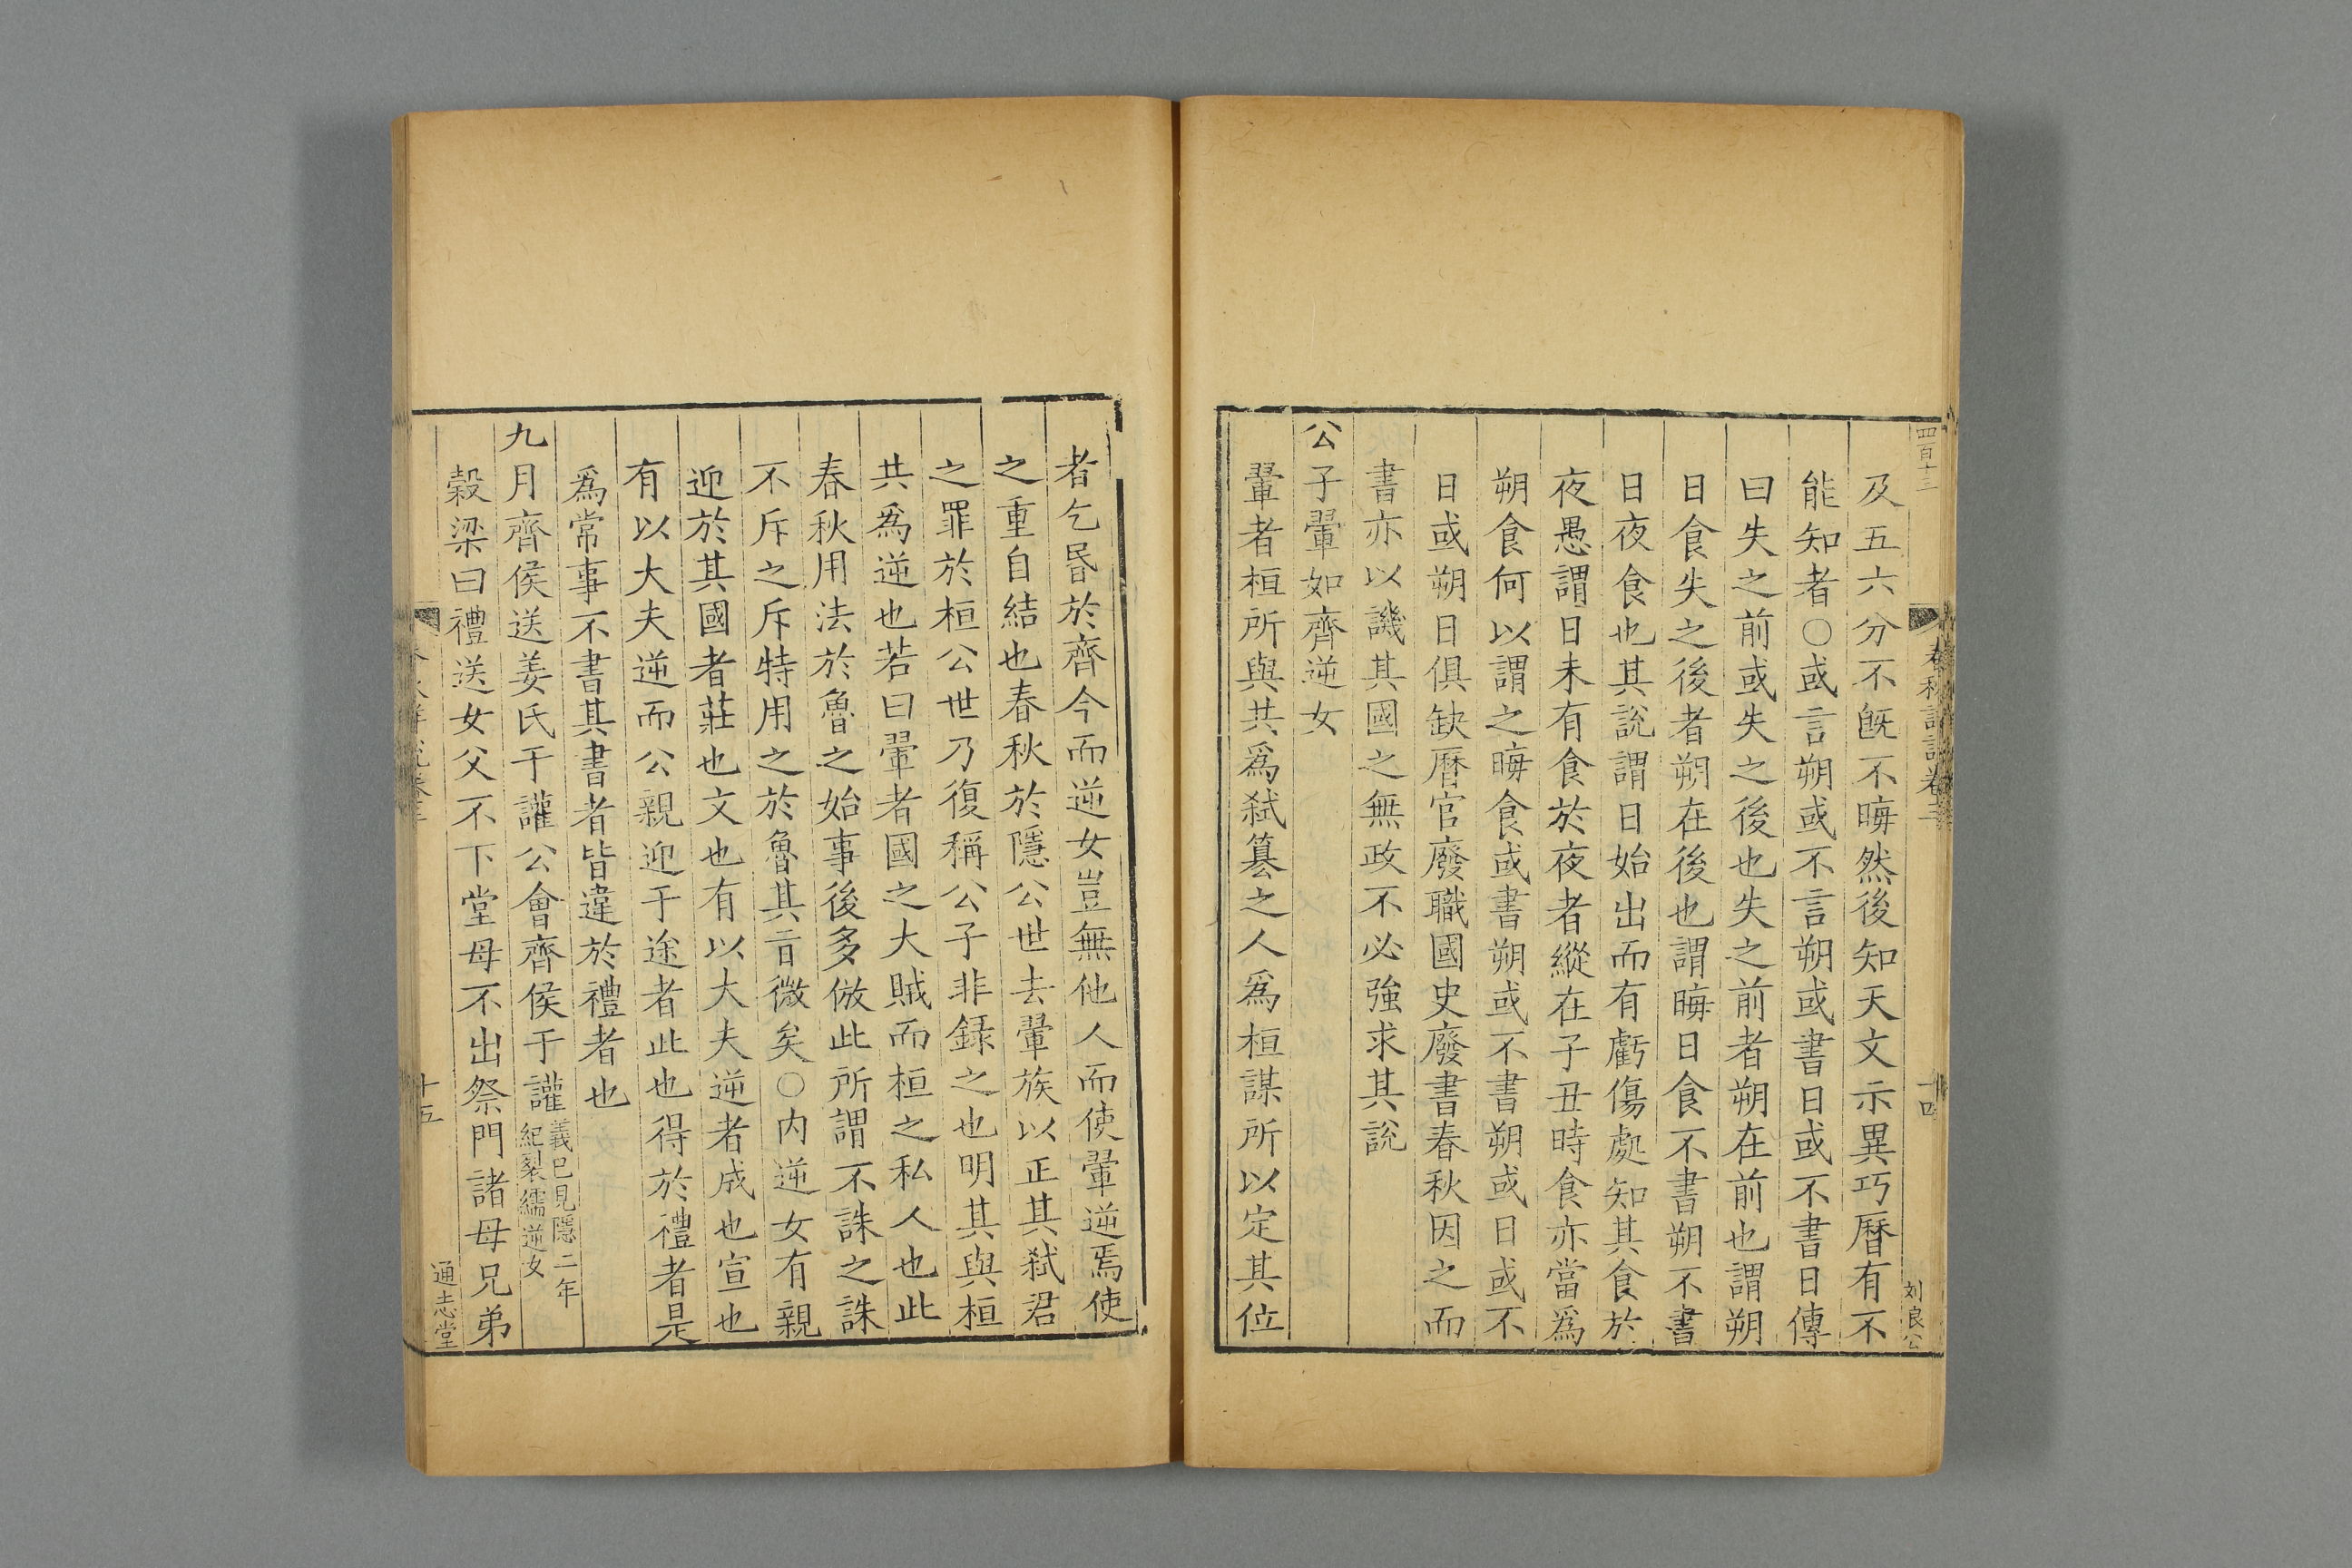 四百十三
春秋詳説卷三
十四
刘良公
及五六分不旣不晦然後知天文示異巧曆有不
能知者○或言朔或不言朔或書日或不書日傳
曰失之前或失之後也失之前者朔在前也謂朔
日食失之後者朔在後也謂晦日食不書朔不書
日夜食也其說謂日始出而有虧傷處知其食於
夜愚謂日未有食於夜者縱在子丑時食亦當爲
朔食何以謂之晦食或書朔或不書朔或日或不
日或朔日俱缺曆官廢職國史廢書春秋因之而
書亦以譏其國之無政不必強求其說
公子翬如齊逆女
翬者桓所與共爲弑篡之人爲桓謀所以定其位
者乞昏於齊今而逆女豈無他人而使翬逆焉使
之重自結也春秋於隱公世去翬族以正其弑君
之罪於桓公世乃復稱公子非錄之也明其與桓
共爲逆也若曰翬者國之大賊而桓之私人也此
春秋用法於魯之始事後多倣此所謂不誅之誅
不斥之斥特用之於魯其旨微矣○内逆女有親
迎於其國者莊也文也有以大夫逆者成也宣也
有以大夫逆而公親迎于途者此也得於禮者是
爲常事不書其書者皆違於禮者也
九月齊侯送姜氏于讙公會齊侯于讙義已見隱二年
紀裂繻逆女
穀梁曰禮送女父不下堂母不出祭門諸母兄弟
十五
通志堂